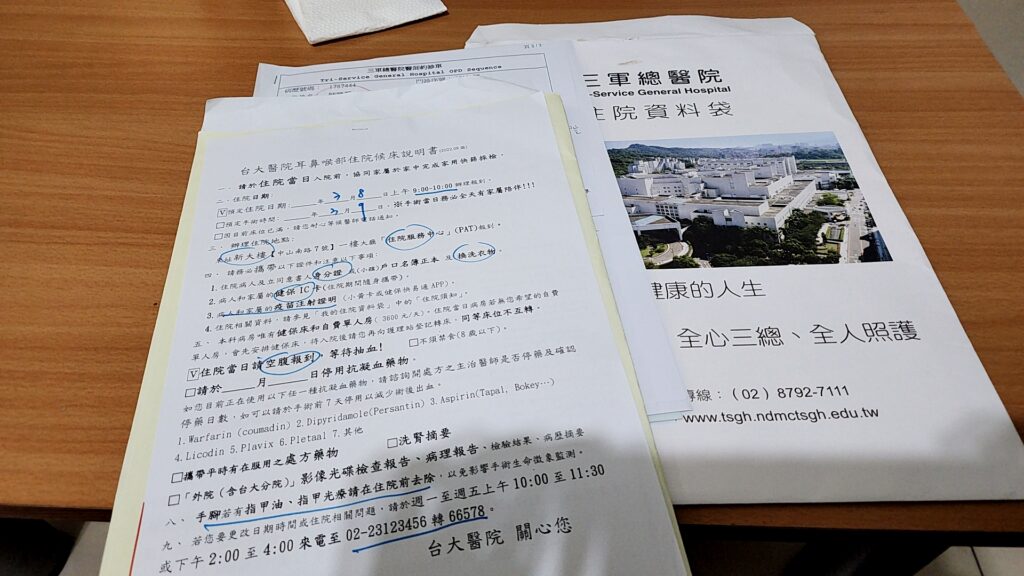 三軍總醫院醫師約診單
Tri-Service General Hospital OPD Sequence
病歷號碼： 1787444
台大醫院耳鼻喉部住院候床說明書(2022.09版)
一、請於住院當日入院前，協同家屬於家中完成家用快篩採檢。
二、住院日期：
V預定住院日期：______年 3 月 8 日上午 9:00-10:00 辦理報到。
□預定手術時間：______年 3 月 9 日，※手術當日務必全天有家屬陪伴!!!
□因目前床位已滿，請您耐心等候醫師電話通知。
三、辦理住院地點：
新大樓【中山南路7號】一樓大廳「住院服務中心」(PAT)報到。
四、請務必攜帶以下證件和注意以下事項：
1. 住院病人及立同意書人身分證、(小孩)戶口名簿正本 及 換洗衣物。
2. 病人和家屬的健保IC卡(住院期間隨身攜帶)。
3. 病人和家屬的疫苗注射證明(小黃卡或健保快易通APP)。
4. 住院相關資料，請參見「我的住院資料袋」中的「住院須知」。
五、本科病房唯有健保床和自費單人房( 3600元/天)。住院當日病房若無您希望的自費
單人房，會先安排健保床，待入院後請您再向護理站登記轉床，同等床位不互轉。
V住院當日請空腹報到，等待抽血! □不須禁食(8歲以下)。
□請於____月____日停用抗凝血藥物。
如您目前正在使用以下任一種抗凝血藥物，請諮詢開處方之主治醫師是否停藥及確認
停藥日數，如可以請於手術前7天停用以減少術後出血。
1.Warfarin (coumadin) 2.Dipyridamole(Persantin) 3.Aspirin(Tapal, Bokey…)
4.Licodin 5.Plavix 6.Pletaal 7.其他
□攜帶平時有在服用之處方藥物 □洗腎摘要
□「外院（含台大分院）」影像光碟檢查報告、病理報告、檢驗結果、病歷摘要
八、手腳若有指甲油、指甲光療請在住院前去除，以免影響手術生命徵象監測。
九、若您要更改日期時間或住院相關問題，請於週一至週五上午10:00 至 11:30
或下午 2:00 至 4:00 來電至 02-23123456 轉 66578。
台大醫院 關心您
三軍總醫院
-Service General Hospital
住院資料袋
健康的人生
全心三總、全人照護
專線：（02）8792-7111
www.tsgh.ndmctsgh.edu.tw